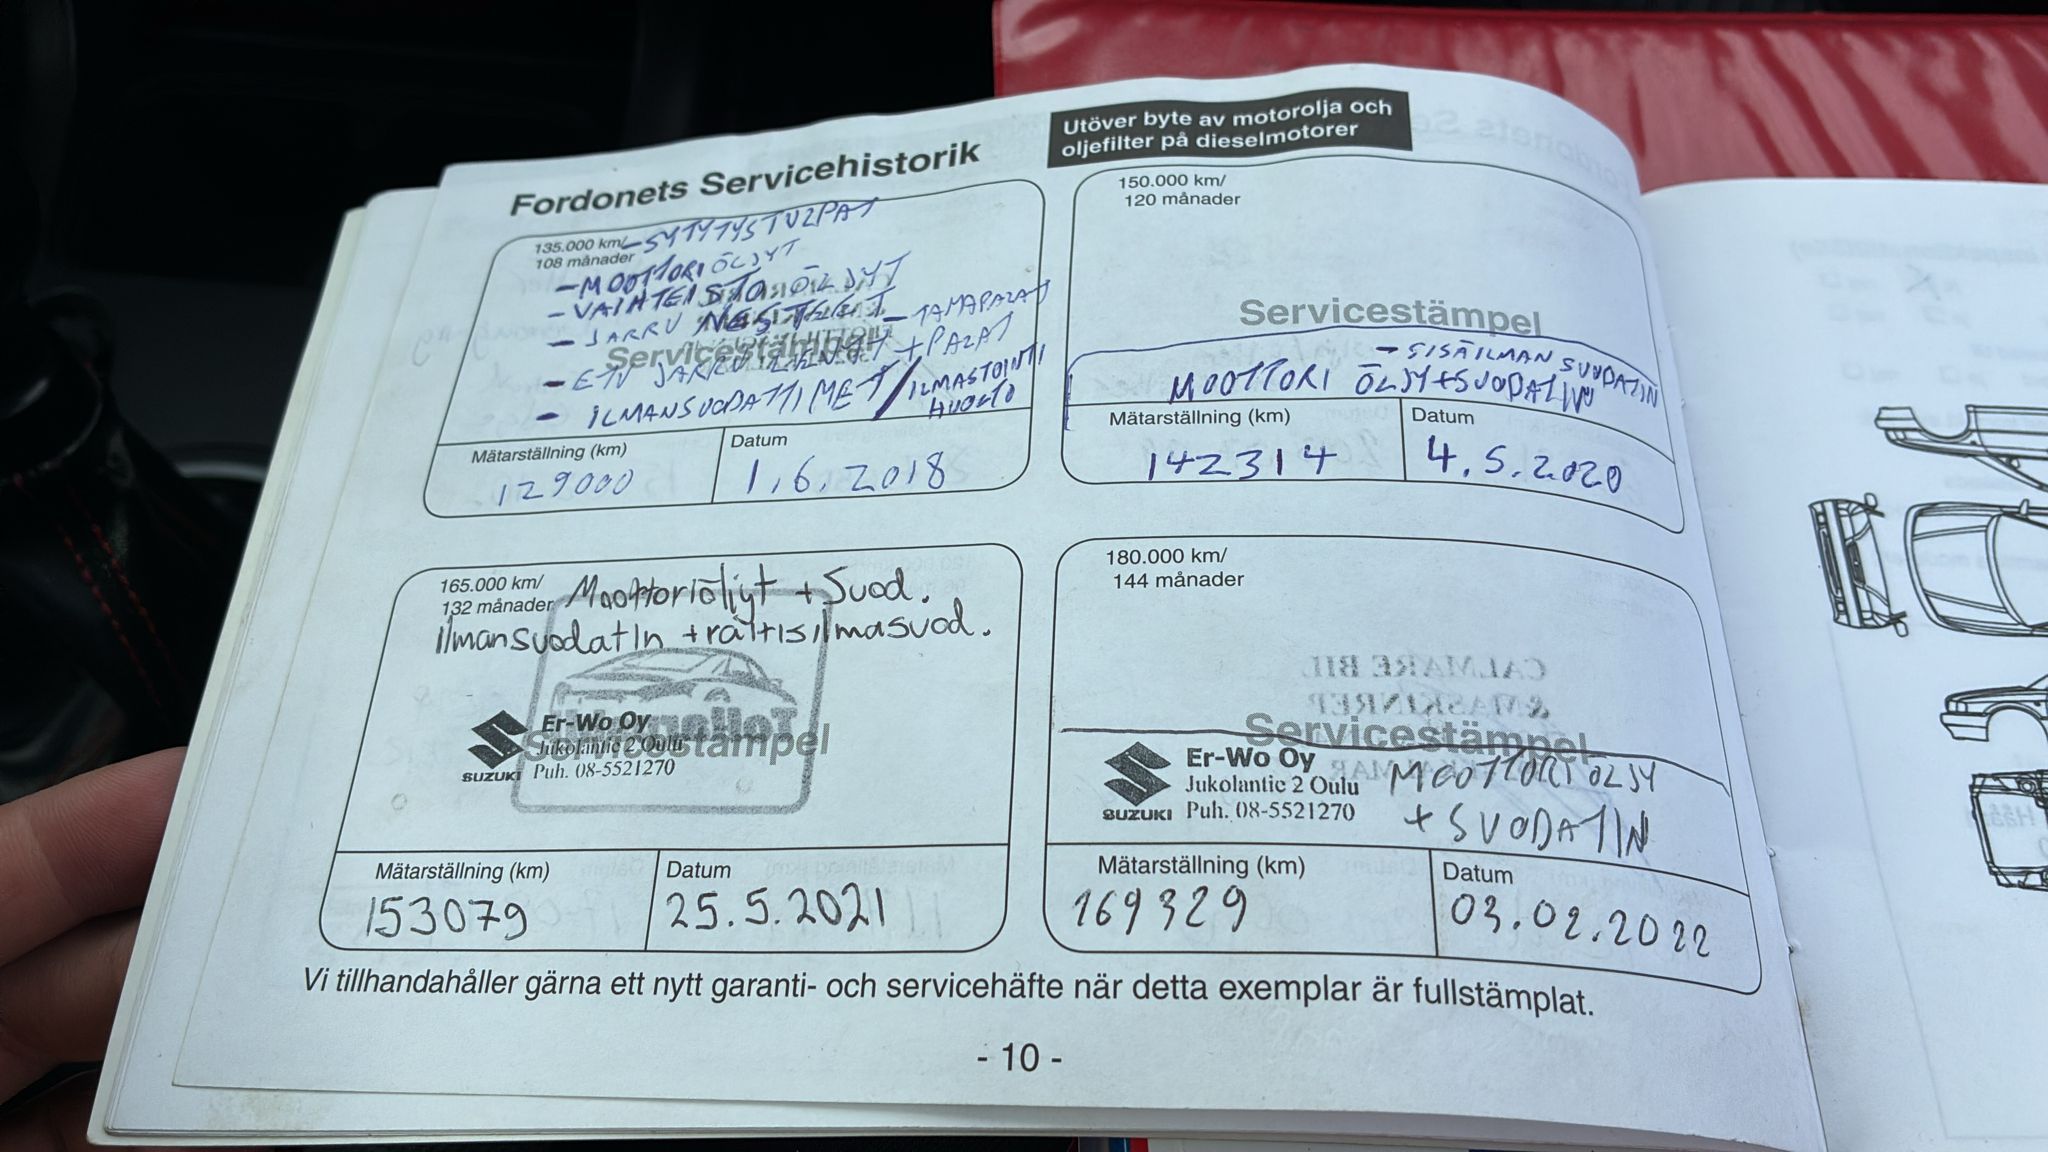 Fordonets Servicehistorik
Utöver byte av motorolja och
oljefilter på dieselmotorer
135.000 km/
108 månader
- SYTYTYSTULPAT
- MOOTTORIÖLJYT
- VAIHTEISTOÖLJYT
- JARRUNESTEET - TAHAPALAT
- ETU JARRULEVYT + PALAT
- ILMANSUODATTIMET / ILMASTOINTI
HUOLTO
Servicestämpel
Mätarställning (km)
129000
Datum
1.6.2018
150.000 km/
120 månader
Servicestämpel
- SISÄILMAN SUODATIN
MOOTTORI ÖLJY+SUODATIN
Mätarställning (km)
142314
Datum
4.5.2020
165.000 km/
132 månader
Moottoriöljyt + Suod.
ilmansuodatin + raitisilmasuod.
Servicestämpel
Er-Wo Oy
Jukolantie 2 Oulu
SUZUKI Puh. 08-5521270
Mätarställning (km)
153079
Datum
25.5.2021
180.000 km/
144 månader
CALMARE BIL
& MASKINREP
Servicestämpel
Er-Wo Oy
Jukolantie 2 Oulu
SUZUKI Puh. 08-5521270
MOOTTORIÖLJY
+ SUODATIN
Mätarställning (km)
169329
Datum
03.02.2022
Vi tillhandahåller gärna ett nytt garanti- och servicehäfte när detta exemplar är fullstämplat.
- 10 -